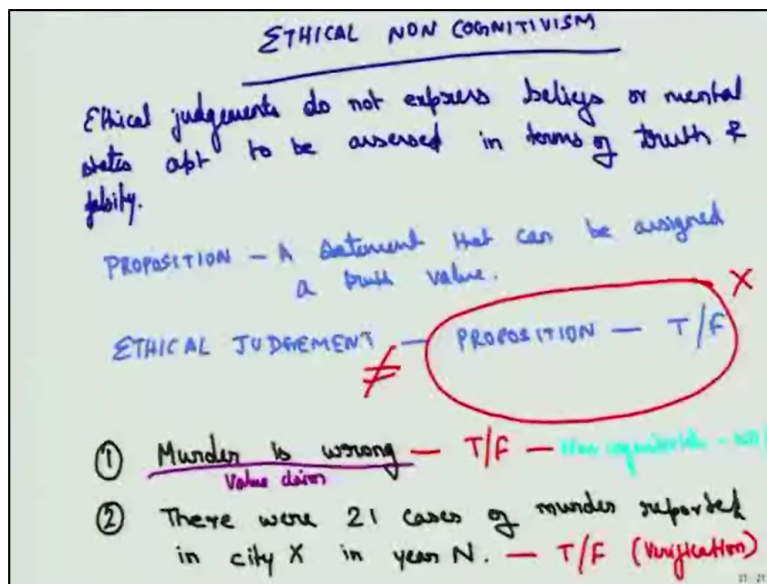 ETHICAL NON COGNITIVISM
Ethical judgements do not express beliefs or mental
states apt to be assessed in terms of truth &
falsity.
PROPOSITION – A statement that can be assigned
a truth value.
X
ETHICAL JUDGEMENT – PROPOSITION – T/F
≠
① Murder is wrong – T/F – Non cognitivists –
Value claim
② There were 21 cases of murder reported
in city X in year N. – T/F (Verification)